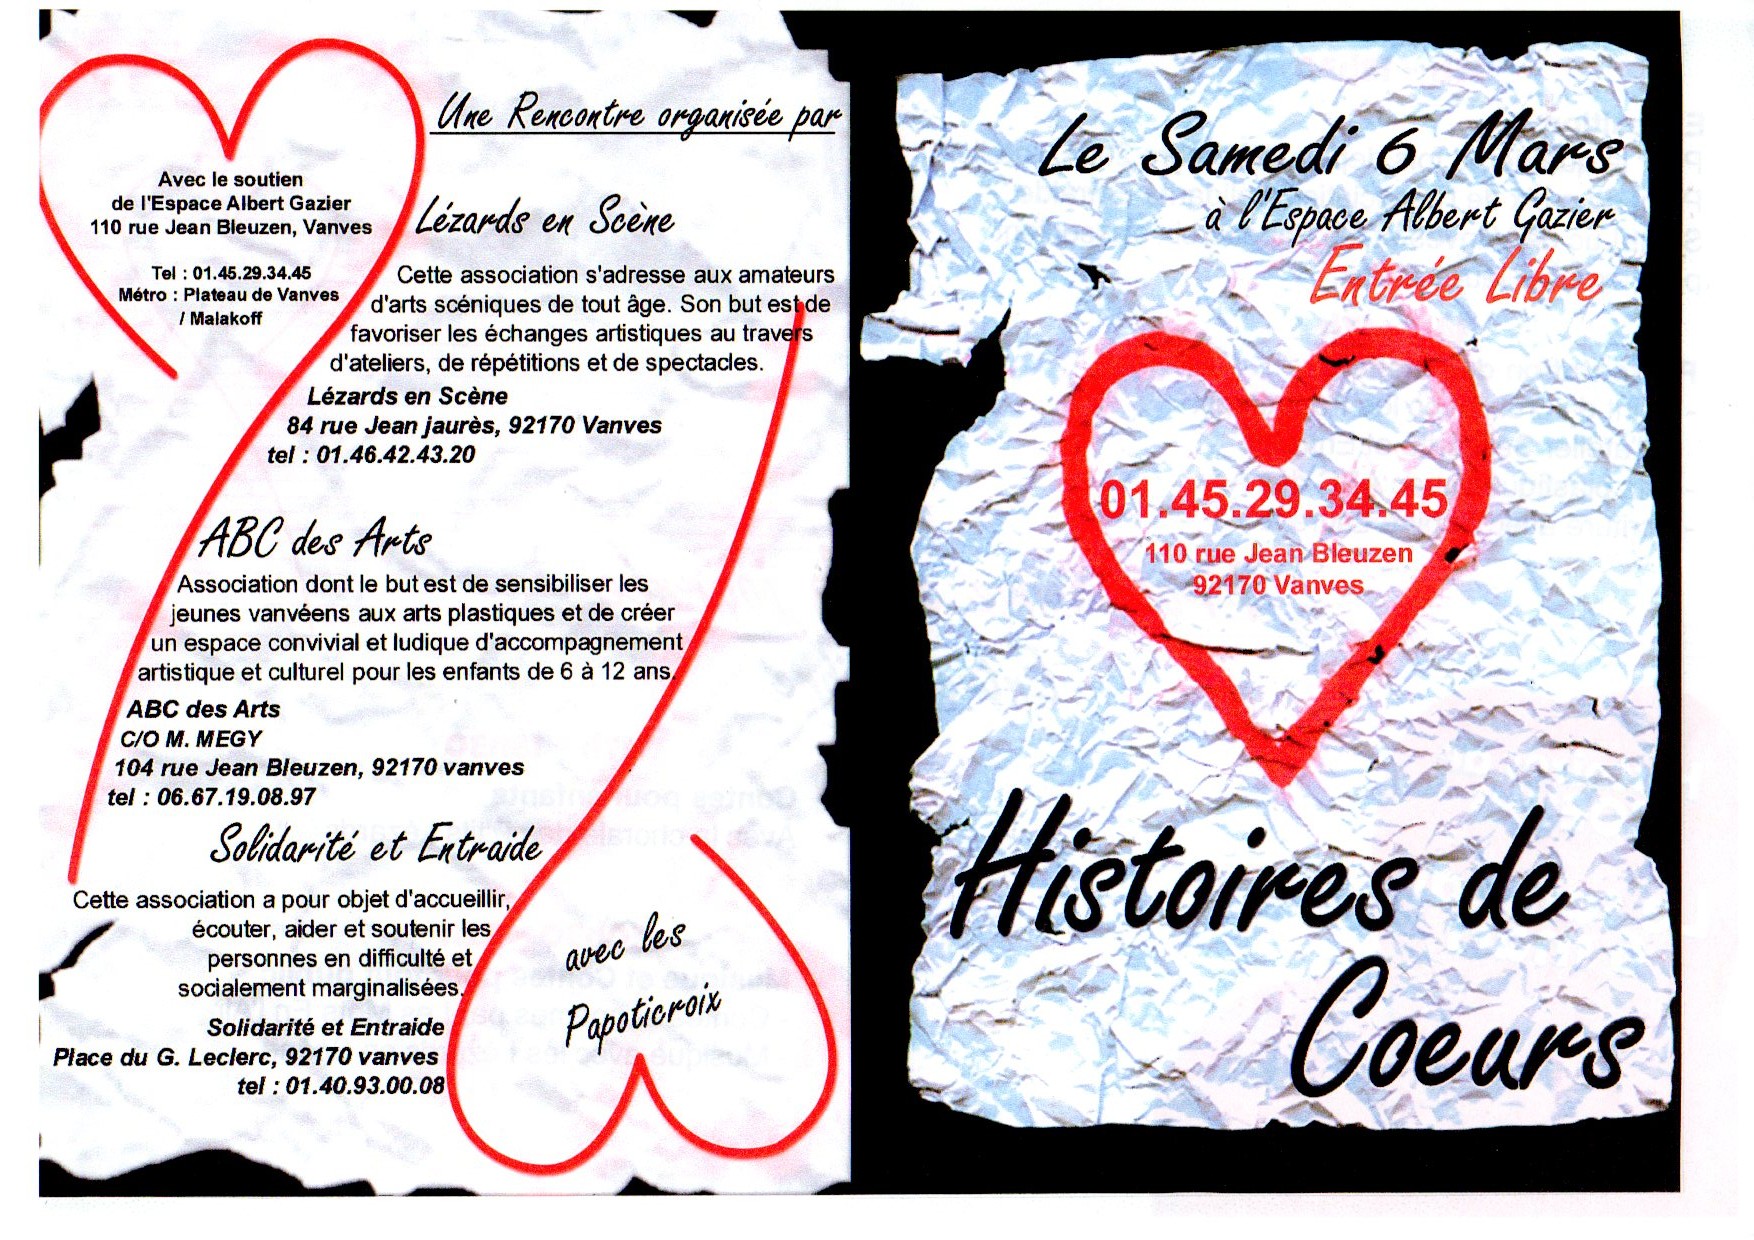 Une Rencontre organisée par
Avec le soutien
de l'Espace Albert Gazier
110 rue Jean Bleuzen, Vanves
Tel : 01.45.29.34.45
Métro : Plateau de Vanves
/ Malakoff
Lézards en Scène
Cette association s'adresse aux amateurs
d'arts scéniques de tout âge. Son but est de
favoriser les échanges artistiques au travers
d'ateliers, de répétitions et de spectacles.
Lézards en Scène
84 rue Jean jaurès, 92170 Vanves
tel : 01.46.42.43.20
ABC des Arts
Association dont le but est de sensibiliser les
jeunes vanvéens aux arts plastiques et de créer
un espace convivial et ludique d'accompagnement
artistique et culturel pour les enfants de 6 à 12 ans.
ABC des Arts
C/O M. MEGY
104 rue Jean Bleuzen, 92170 vanves
tel : 06.67.19.08.97
Solidarité et Entraide
Cette association a pour objet d'accueillir,
écouter, aider et soutenir les
personnes en difficulté et
socialement marginalisées.
Solidarité et Entraide
Place du G. Leclerc, 92170 vanves
tel : 01.40.93.00.08
avec les
Papoticroix
Le Samedi 6 Mars
à l'Espace Albert Gazier
Entrée Libre
01.45.29.34.45
110 rue Jean Bleuzen
92170 Vanves
Histoires de
Coeurs